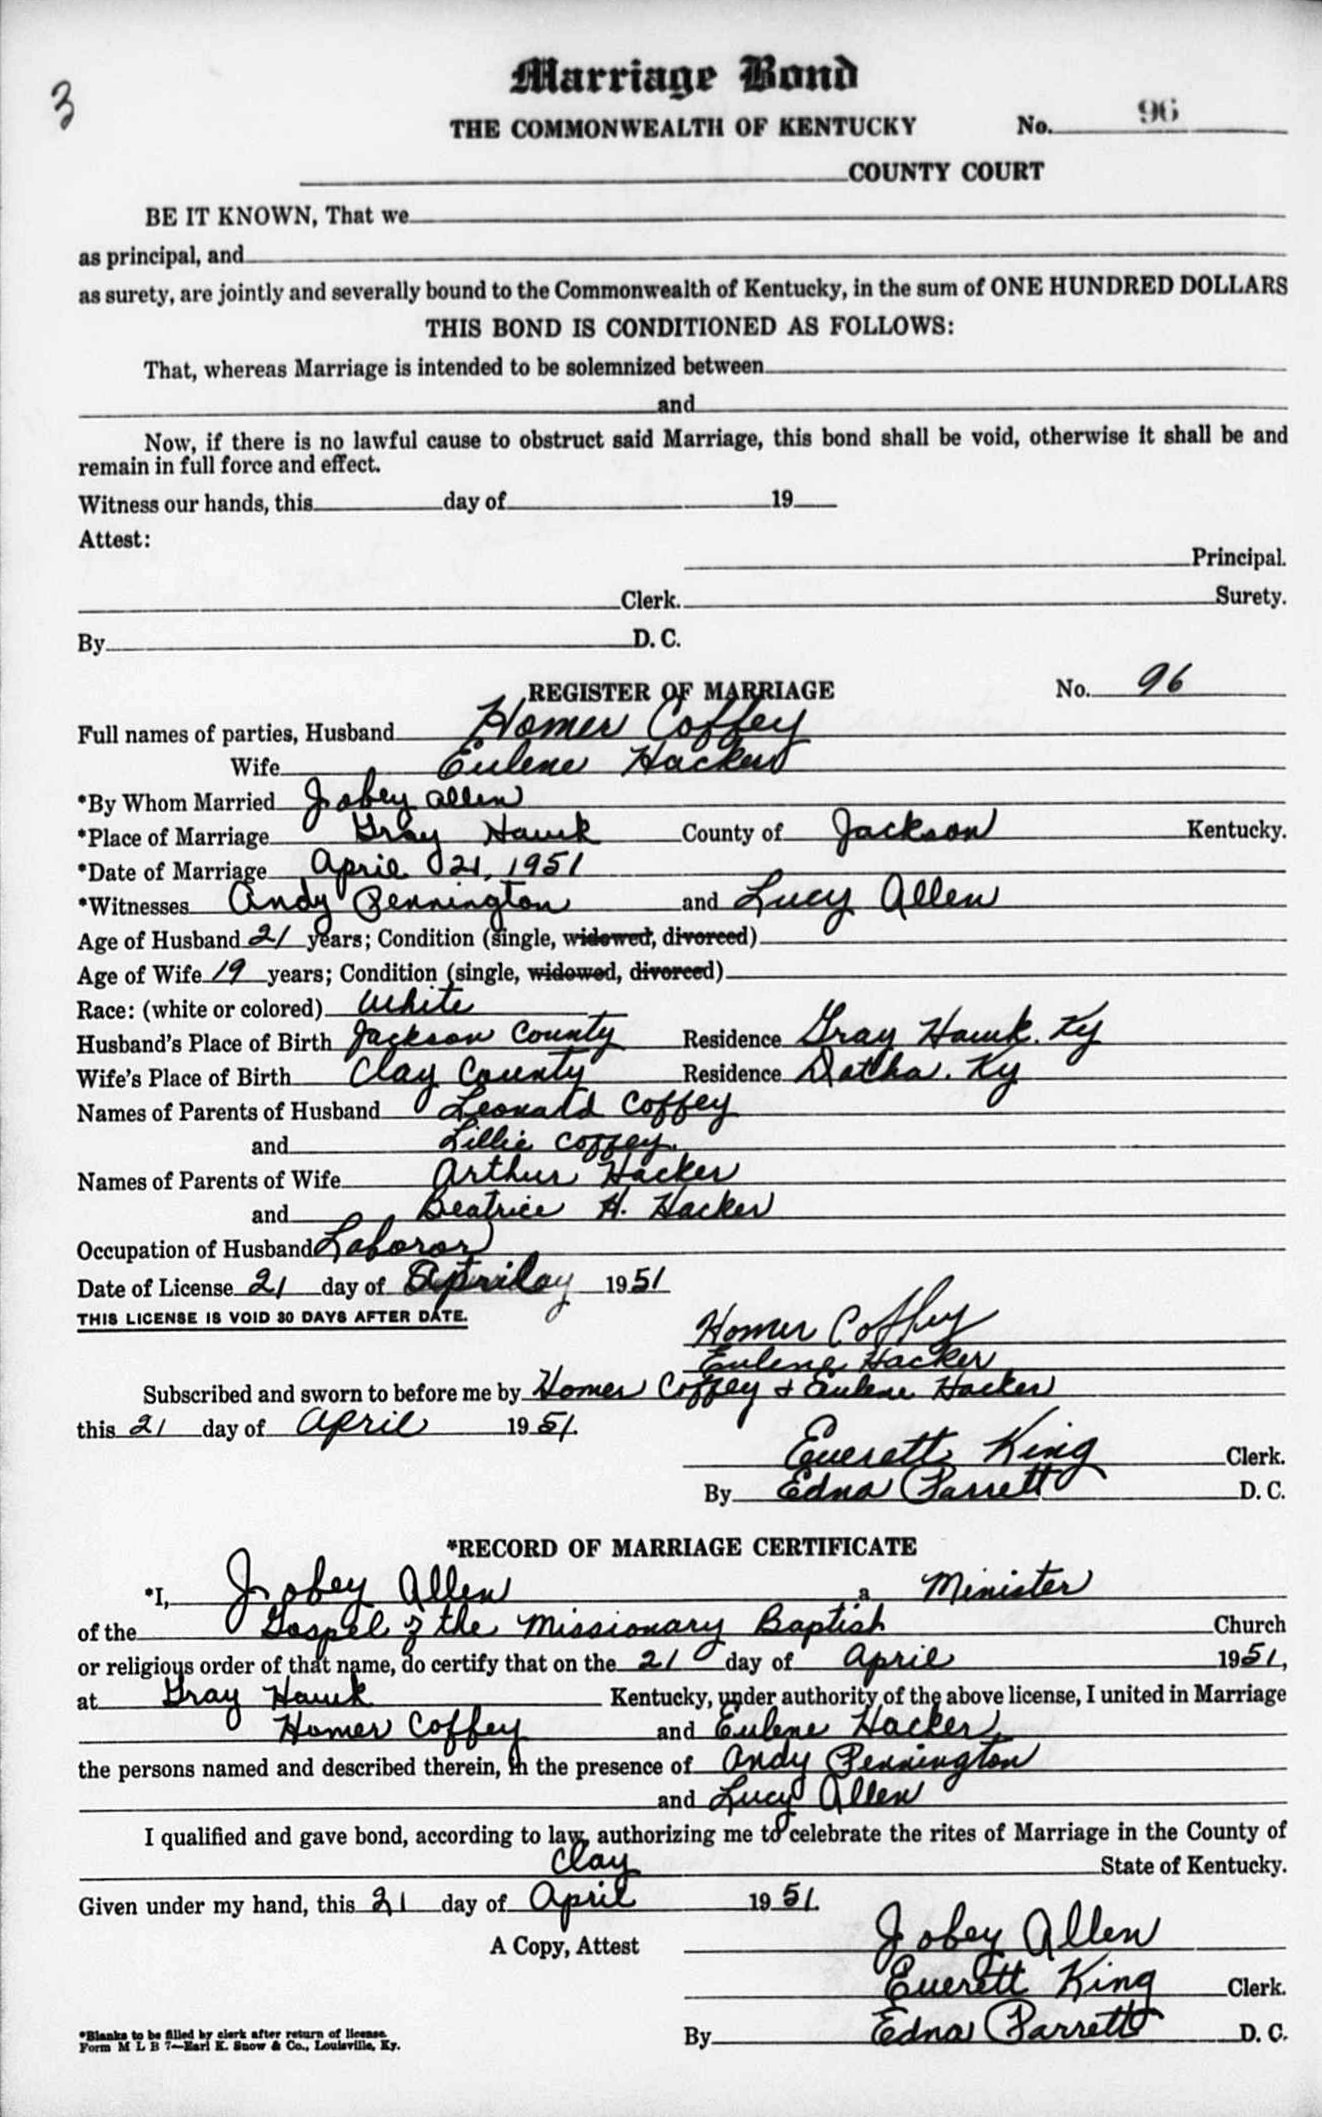 3
Marriage Bond
THE COMMONWEALTH OF KENTUCKY No. 96
COUNTY COURT
BE IT KNOWN, That we
as principal, and
as surety, are jointly and severally bound to the Commonwealth of Kentucky, in the sum of ONE HUNDRED DOLLARS
THIS BOND IS CONDITIONED AS FOLLOWS:
That, whereas Marriage is intended to be solemnized between
and
Now, if there is no lawful cause to obstruct said Marriage, this bond shall be void, otherwise it shall be and
remain in full force and effect.
Witness our hands, this day of 19
Attest:
Principal.
Clerk. Surety.
By D. C.
REGISTER OF MARRIAGE No. 96
Full names of parties, Husband Homer Coffey
Wife Eulene Hacker
*By Whom Married Jobey Allen
*Place of Marriage Gray Hawk County of Jackson Kentucky.
*Date of Marriage April 21, 1951
*Witnesses Andy Pennington and Lucy Allen
Age of Husband 21 years; Condition (single, widowed, divorced)
Age of Wife 19 years; Condition (single, widowed, divorced)
Race: (white or colored) White
Husband's Place of Birth Jackson County Residence Gray Hawk. Ky
Wife's Place of Birth Clay County Residence Datha. Ky
Names of Parents of Husband Leonard Coffey
and Lillie Coffey.
Names of Parents of Wife Arthur Hacker
and Beatrice H. Hacker
Occupation of Husband Laboror
Date of License 21 day of April 1951
THIS LICENSE IS VOID 30 DAYS AFTER DATE.
Homer Coffey
Eulene Hacker
Subscribed and sworn to before me by Homer Coffey & Eulene Hacker
this 21 day of April 1951.
Everett King Clerk.
By Edna Parrett D. C.
*RECORD OF MARRIAGE CERTIFICATE
*I, Jobey Allen a Minister
of the Gospel of the Missionary Baptish Church
or religious order of that name, do certify that on the 21 day of April 1951,
at Gray Hawk Kentucky, under authority of the above license, I united in Marriage
Homer Coffey and Eulene Hacker
the persons named and described therein, in the presence of Andy Pennington
and Lucy Allen
I qualified and gave bond, according to law, authorizing me to celebrate the rites of Marriage in the County of
Clay State of Kentucky.
Given under my hand, this 21 day of April 1951.
A Copy, Attest Jobey Allen
Everett King Clerk.
*Blanks to be filled by clerk after return of license.
Form M L B 7—Earl K. Snow & Co., Louisville, Ky. By Edna Parrett D. C.